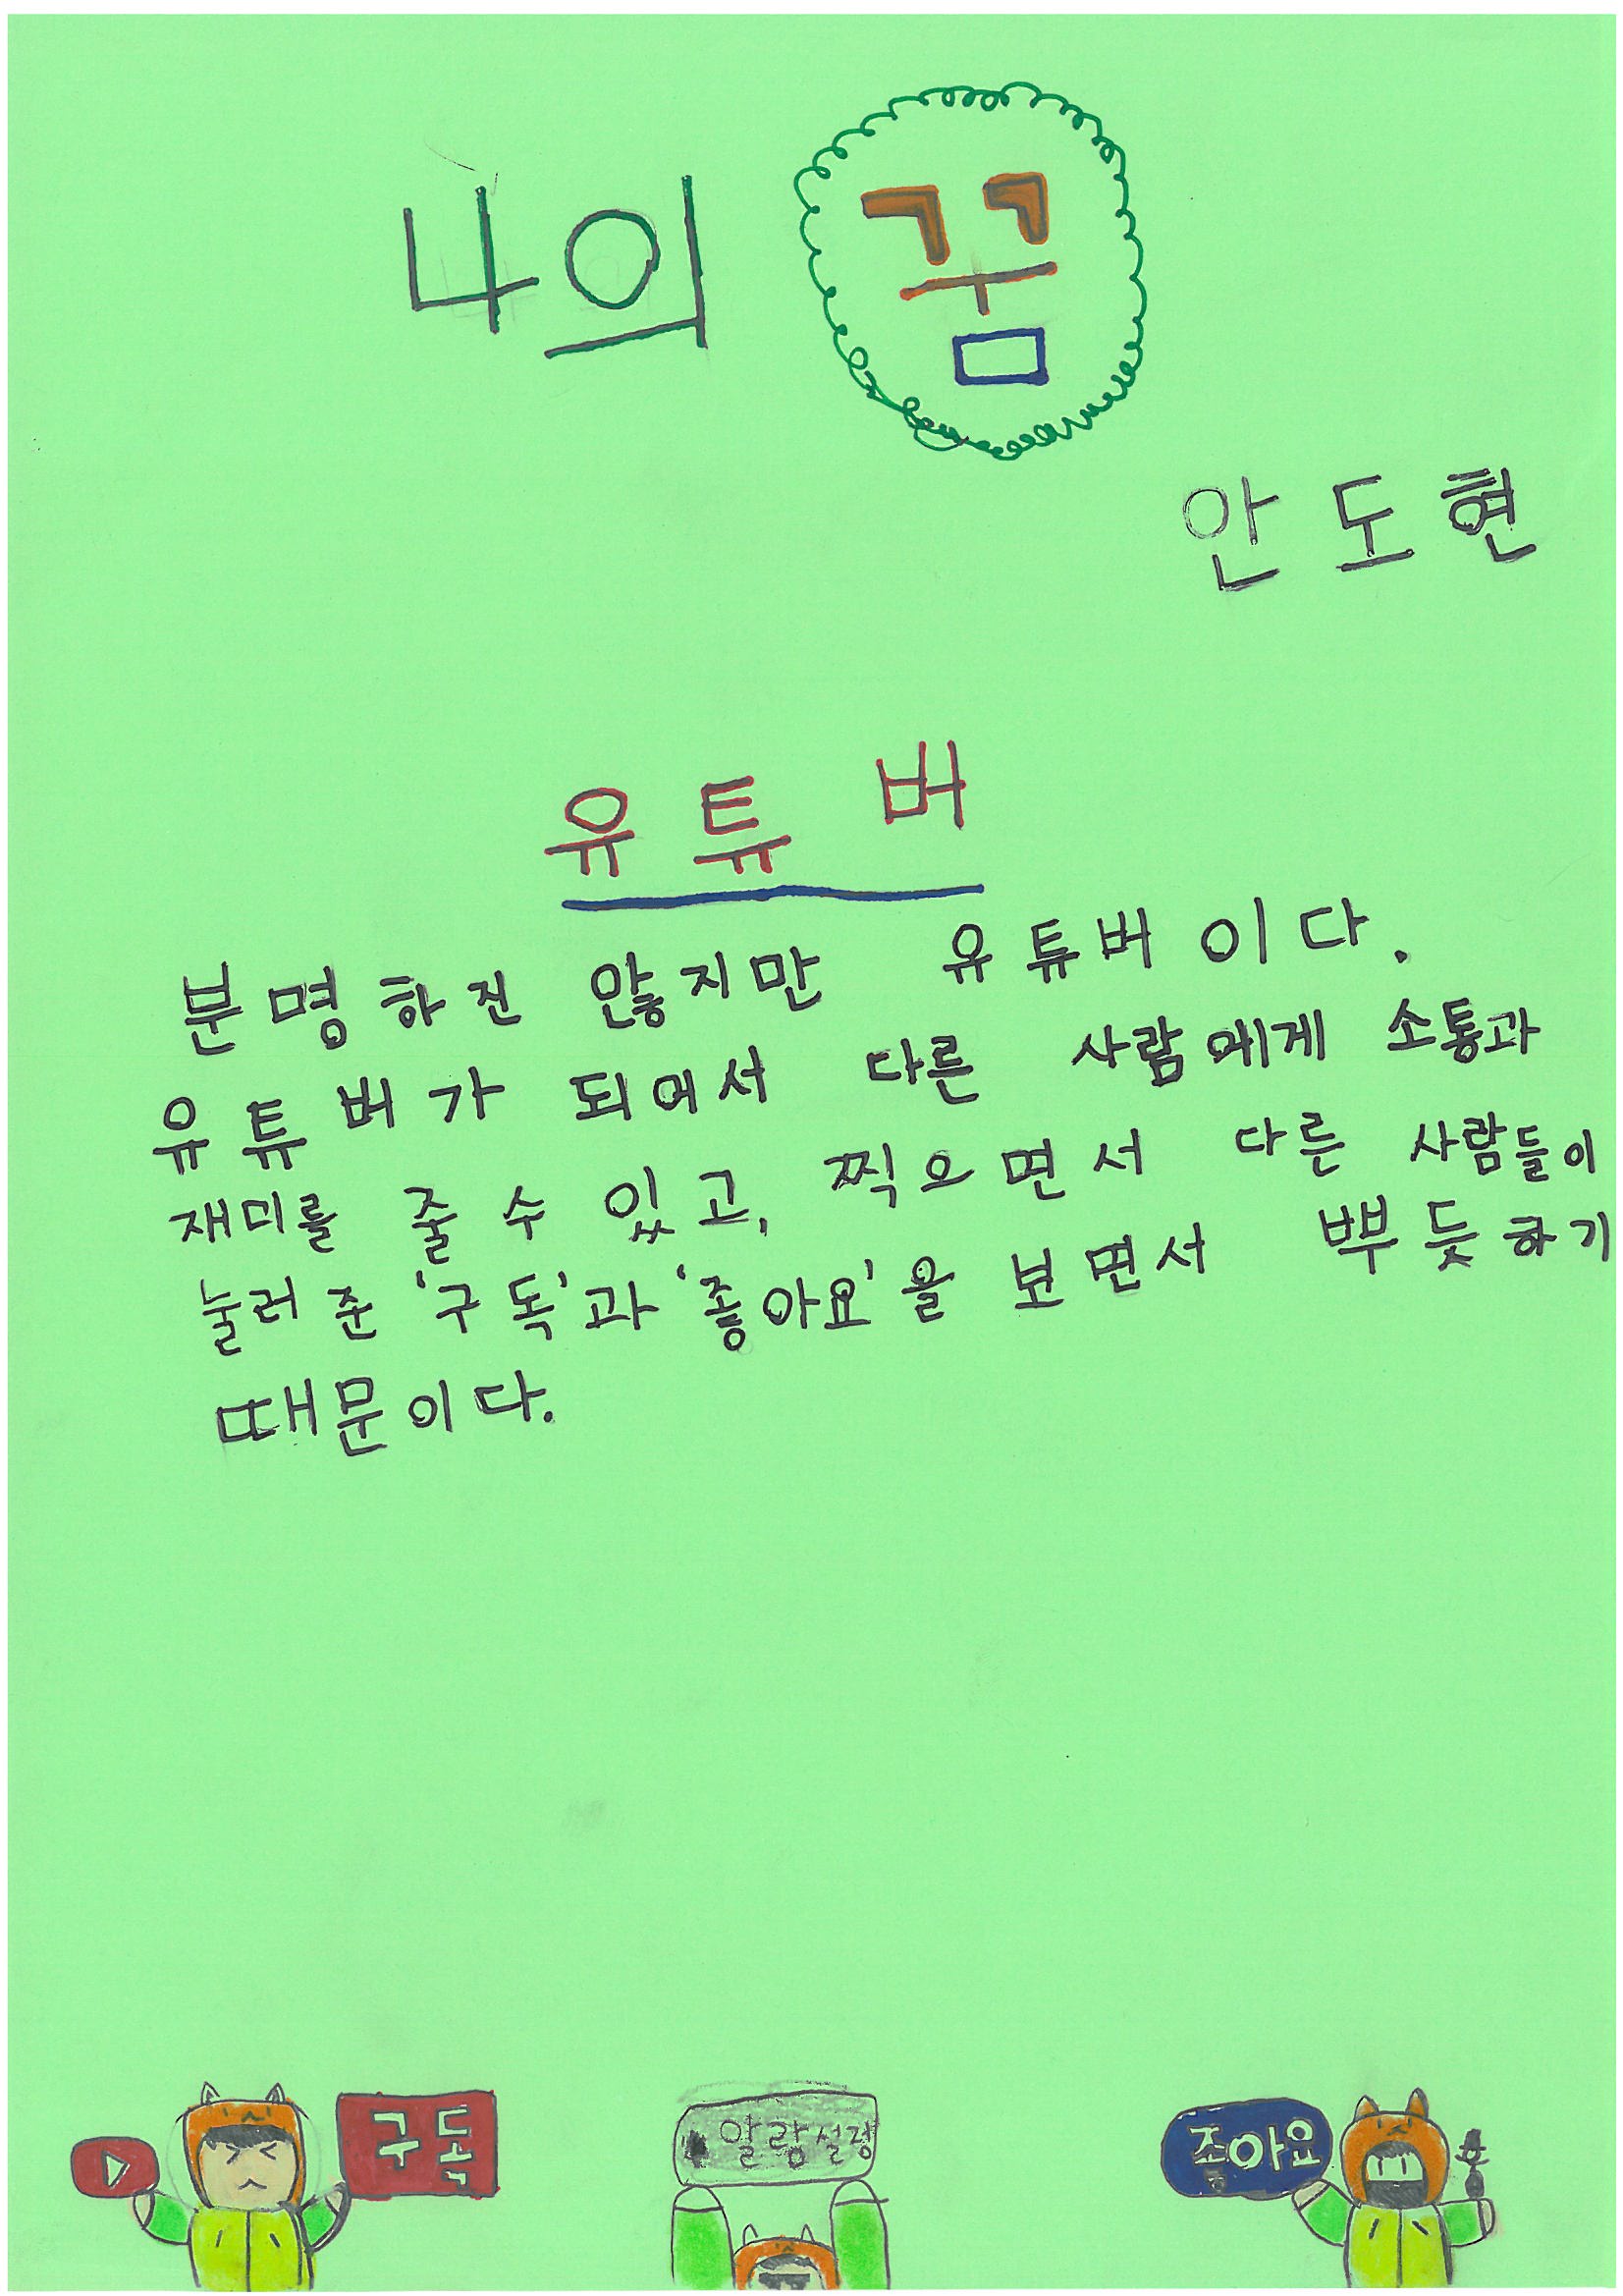 나의 꿈
안도현
유튜버
분명하진 않지만 유튜버이다.
유튜버가 되어서 다른 사람에게 소통과
재미를 줄 수 있고, 찍으면서 다른 사람들이
눌러준 '구독'과 '좋아요'을 보면서 뿌듯하기
때문이다.
구독
알람설정
좋아요